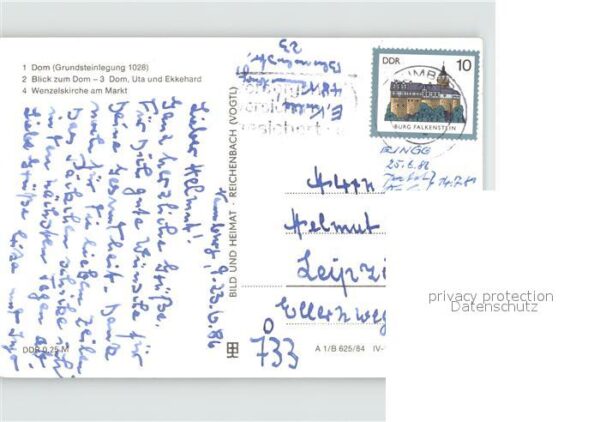 1 Dom (Grundsteinlegung 1028)
2 Blick zum Dom – 3 Dom, Uta und Ekkehard
4 Wenzelskirche am Markt
DDR 10
BURG FALKENSTEIN
Naumburg, d. 23.6.86
Lieber Helmut!
Ganz herzliche Grüße.
Für Dich gute Wünsche für
Deine Gesundheit. Danke
noch für die lieben Zeilen
Das Päckchen schicke ich
in den nächsten Tagen ab
Liebe Grüße
23
BILD UND HEIMAT · REICHENBACH (VOGTL)
25.6.86
Herrn
Helmut
Leipzi
Ellernweg
O
733
DDR 0,25 M
A 1/B 625/84 IV-
privacy protection
Datenschutz